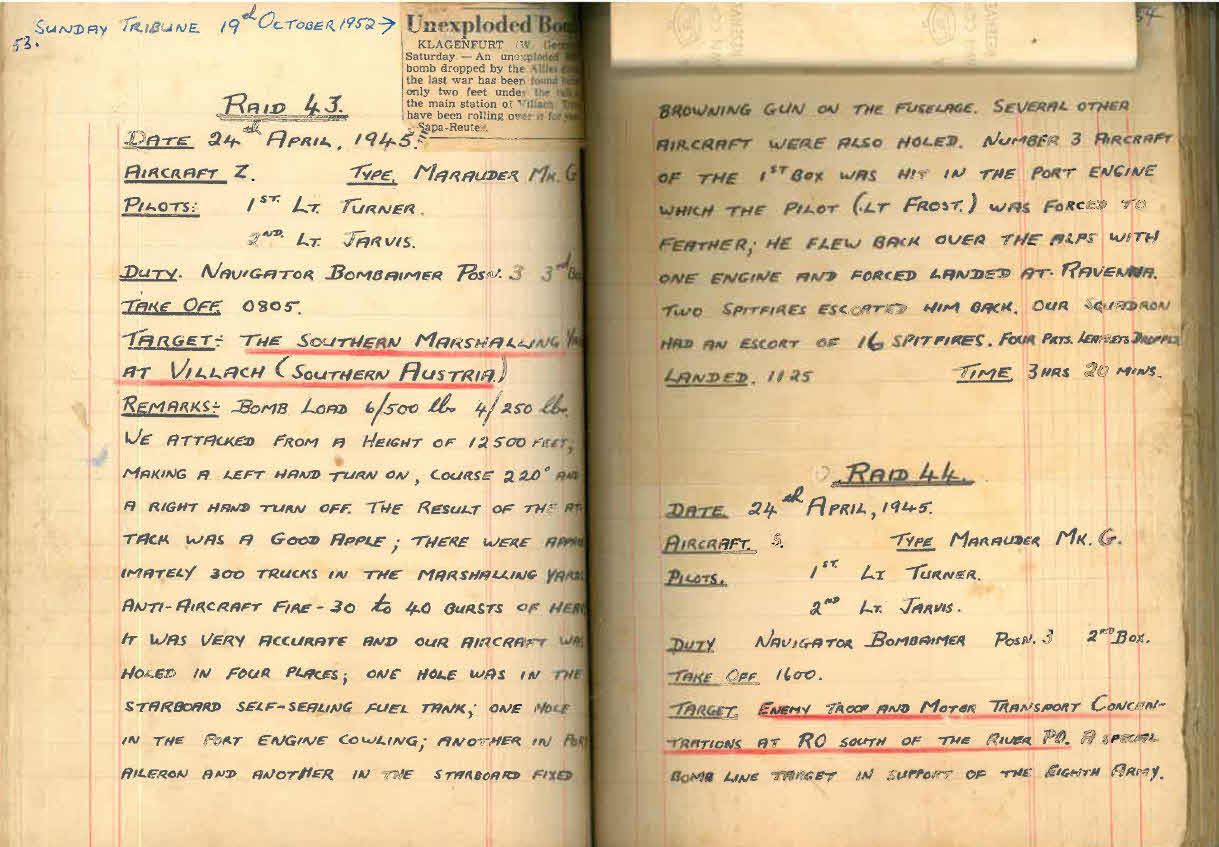 53.
SUNDAY TRIBUNE 19th OCTOBER 1952 →
Unexploded Bom
KLAGENFURT (W.
Saturday. — An unexploded
bomb dropped by the Allies
the last war has been found
only two feet under the
the main station of Villach
have been rolling over it for
Sapa-Reuter.
RAID 43.
DATE 24th APRIL, 1945.
AIRCRAFT Z. TYPE MARAUDER MK. G
PILOTS: 1ST. LT. TURNER.
2ND. LT. JARVIS.
DUTY. NAVIGATOR BOMBAIMER POSN. 3 3rd BO
TAKE OFF. 0805.
TARGET:- THE SOUTHERN MARSHALLING YAR
AT VILLACH (SOUTHERN AUSTRIA.)
REMARKS:- BOMB LOAD 6/500 lbs 4/250 lb.
WE ATTACKED FROM A HEIGHT OF 12500 FEET,
MAKING A LEFT HAND TURN ON, COURSE 220° AND
A RIGHT HAND TURN OFF. THE RESULT OF THE AT
TACK WAS A GOOD APPLE; THERE WERE APPROX
IMATELY 300 TRUCKS IN THE MARSHALLING YARDS
ANTI-AIRCRAFT FIRE - 30 to 40 BURSTS OF HEAV
IT WAS VERY ACCURATE AND OUR AIRCRAFT WAS
HOLED IN FOUR PLACES; ONE HOLE WAS IN THE
STARBOARD SELF-SEALING FUEL TANK; ONE HOLE
IN THE PORT ENGINE COWLING; ANOTHER IN PORT
AILERON AND ANOTHER IN THE STARBOARD FIXED
54
BROWNING GUN ON THE FUSELAGE. SEVERAL OTHER
AIRCRAFT WERE ALSO HOLED. NUMBER 3 AIRCRAFT
OF THE 1ST BOX WAS HIT IN THE PORT ENGINE
WHICH THE PILOT (LT FROST.) WAS FORCED TO
FEATHER; HE FLEW BACK OVER THE ALPS WITH
ONE ENGINE AND FORCED LANDED AT RAVENNA.
TWO SPITFIRES ESCORTED HIM BACK. OUR SQUADRON
HAD AN ESCORT OF 16 SPITFIRES. FOUR PKTS. LEAFLETS DROPPED
LANDED. 1125 TIME 3 HRS 20 MINS.
RAID 44.
DATE 24th APRIL, 1945.
AIRCRAFT. S. TYPE MARAUDER MK. G.
PILOTS. 1ST. LT TURNER.
2ND LT. JARVIS.
DUTY NAVIGATOR BOMBAIMER POSN. 3 2ND BOX.
TAKE OFF 1600.
TARGET. ENEMY TROOP AND MOTOR TRANSPORT CONCEN-
TRATIONS AT RO SOUTH OF THE RIVER PO. A SPECIAL
BOMB LINE TARGET IN SUPPORT OF THE EIGHTH ARMY.